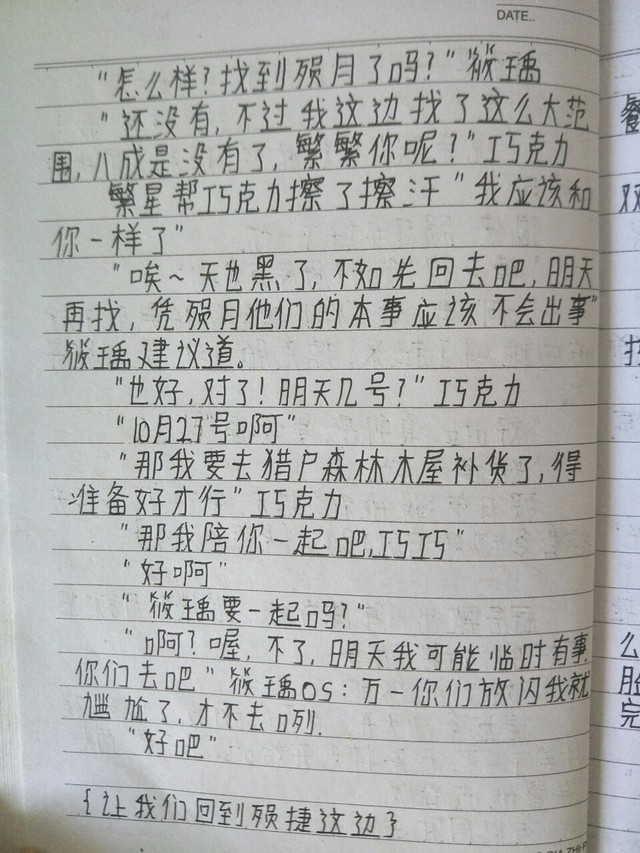 DATE..
“怎么样?找到殒月了吗?”筱瑀
“还没有,不过我这边找了这么大范
围,八成是没有了,繁繁你呢?”巧克力
繁星帮巧克力擦了擦汗“我应该和
你一样了”
“唉~天也黑了,不如先回去吧,明天
再找,凭殒月他们的本事应该不会出事”
筱瑀建议道。
“也好,对了!明天几号?”巧克力
“10月27号啊”
“那我要去猎户森林木屋补货了,得
准备好才行”巧克力
“那我陪你一起吧,巧巧”
“好啊”
“筱瑀要一起吗?”
“啊?喔,不了,明天我可能临时有事.
你们去吧”筱瑀OS:万一你们放闪我就
尴尬了,才不去咧.
“好吧”
{让我们回到殒捷这边}
双
找
么
胎
完